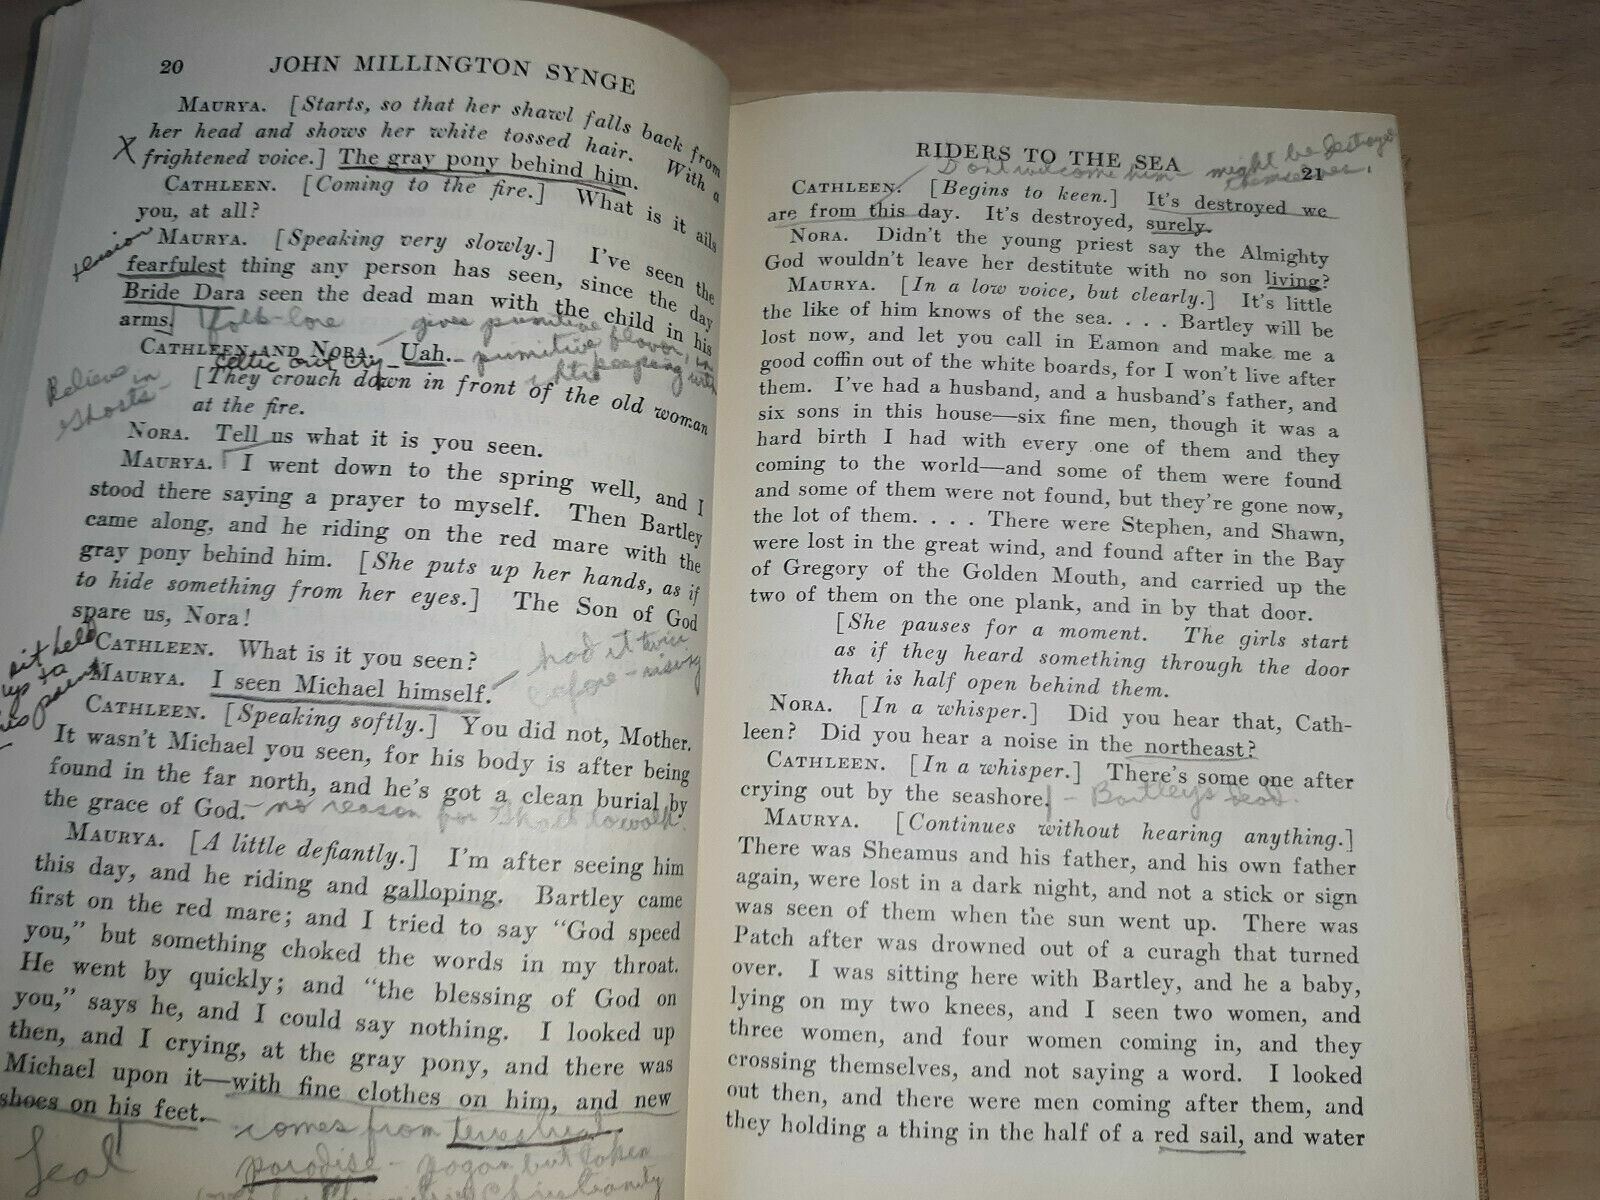 20 JOHN MILLINGTON SYNGE
MAURYA. [Starts, so that her shawl falls back from
her head and shows her white tossed hair. With a
X frightened voice.] The gray pony behind him.
CATHLEEN. [Coming to the fire.] What is it ails
you, at all?
tension
MAURYA. [Speaking very slowly.] I've seen the
fearfulest thing any person has seen, since the day
Bride Dara seen the dead man with the child in his
arms. folk-lore gives primitive flavor, in
CATHLEEN AND NORA. Uah. - primitive keeping with
Celtic out cry -
Believe in
ghosts -
[They crouch down in front of the old woman
at the fire.
NORA. Tell us what it is you seen.
MAURYA. I went down to the spring well, and I
stood there saying a prayer to myself. Then Bartley
came along, and he riding on the red mare with the
gray pony behind him. [She puts up her hands, as if
to hide something from her eyes.] The Son of God
spare us, Nora!
held
up to
this point
CATHLEEN. What is it you seen?
had it twice
before -
MAURYA. I seen Michael himself.
CATHLEEN. [Speaking softly.] You did not, Mother.
It wasn't Michael you seen, for his body is after being
found in the far north, and he's got a clean burial by
the grace of God. - no reason for ghost to walk.
MAURYA. [A little defiantly.] I'm after seeing him
this day, and he riding and galloping. Bartley came
first on the red mare; and I tried to say "God speed
you," but something choked the words in my throat.
He went by quickly; and "the blessing of God on
you," says he, and I could say nothing. I looked up
then, and I crying, at the gray pony, and there was
Michael upon it—with fine clothes on him, and new
shoes on his feet.
comes from terrestrial
paradise - pagan but taken
Christianity
RIDERS TO THE SEA 21
Don't welcome him might be destroyed
themselves.
CATHLEEN. [Begins to keen.] It's destroyed we
are from this day. It's destroyed, surely.
NORA. Didn't the young priest say the Almighty
God wouldn't leave her destitute with no son living?
MAURYA. [In a low voice, but clearly.] It's little
the like of him knows of the sea. . . . Bartley will be
lost now, and let you call in Eamon and make me a
good coffin out of the white boards, for I won't live after
them. I've had a husband, and a husband's father, and
six sons in this house—six fine men, though it was a
hard birth I had with every one of them and they
coming to the world—and some of them were found
and some of them were not found, but they're gone now,
the lot of them. . . . There were Stephen, and Shawn,
were lost in the great wind, and found after in the Bay
of Gregory of the Golden Mouth, and carried up the
two of them on the one plank, and in by that door.
[She pauses for a moment. The girls start
as if they heard something through the door
that is half open behind them.
NORA. [In a whisper.] Did you hear that, Cath-
leen? Did you hear a noise in the northeast?
CATHLEEN. [In a whisper.] There's some one after
crying out by the seashore. - Bartley's dead.
MAURYA. [Continues without hearing anything.]
There was Sheamus and his father, and his own father
again, were lost in a dark night, and not a stick or sign
was seen of them when the sun went up. There was
Patch after was drowned out of a curagh that turned
over. I was sitting here with Bartley, and he a baby,
lying on my two knees, and I seen two women, and
three women, and four women coming in, and they
crossing themselves, and not saying a word. I looked
out then, and there were men coming after them, and
they holding a thing in the half of a red sail, and water